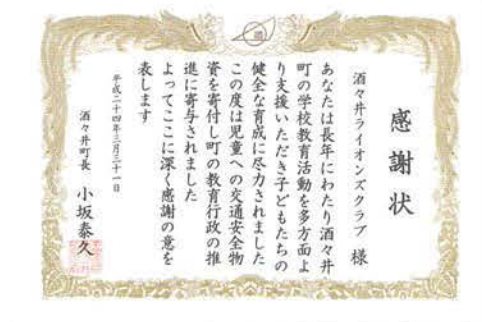 感謝状
酒々井ライオンズクラブ 様
あなたは長年にわたり酒々井
町の学校教育活動を多方面よ
り支援いただき子どもたちの
健全な育成に尽力されました
この度は児童への交通安全物
資を寄付し町の教育行政の推
進に寄与されました
よってここに深く感謝の意を
表します
平成二十四年三月三十一日
酒々井町長 小坂泰久